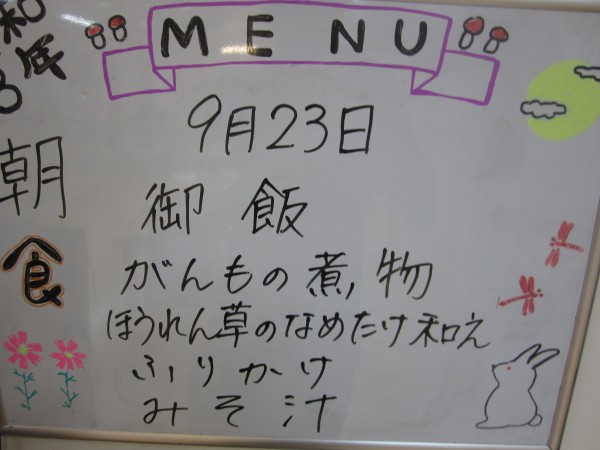 MENU
和
3年
朝食
9月23日
御飯
がんもの煮物
ほうれん草のなめたけ和え
ふりかけ
みそ汁